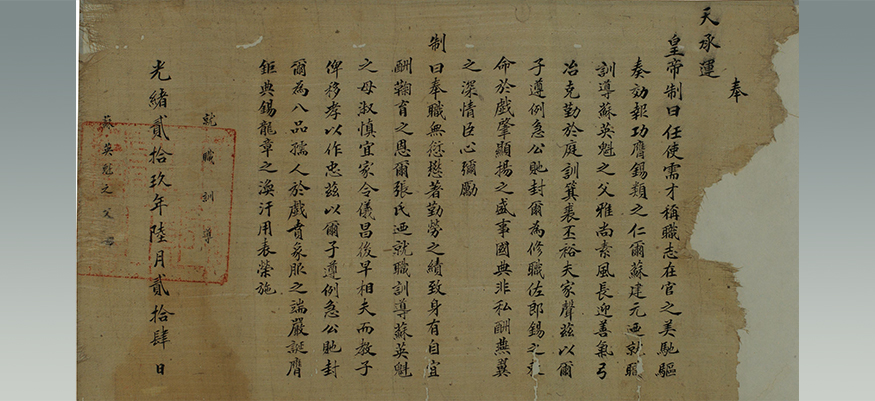 奉
天承運
皇帝制曰任使需才稱職志在官之美馳驅
奏効報功膺錫類之仁爾蘇建元迺就職
訓導蘇英魁之父雅尚素風長迎善氣弓
冶克勤於庭訓箕裘丕裕夫家聲茲以爾
子遵例急公貤封爾為修職佐郎錫之
命於戲肇顯揚之盛事國典非私酬燕翼
之深情臣心彌勵
制曰奉職無愆懋著勤勞之績致身有自宜
酬鞠育之恩爾張氏迺就職訓導蘇英魁
之母淑慎宜家令儀昌後早相夫而教子
俾移孝以作忠茲以爾子遵例急公貤封
爾為八品孺人於戲賁象服之端嚴誕膺
鉅典錫龍章之渙汗用表榮施
就職訓導
光緒貳拾玖年陸月貳拾肆日
蘇英魁之父母